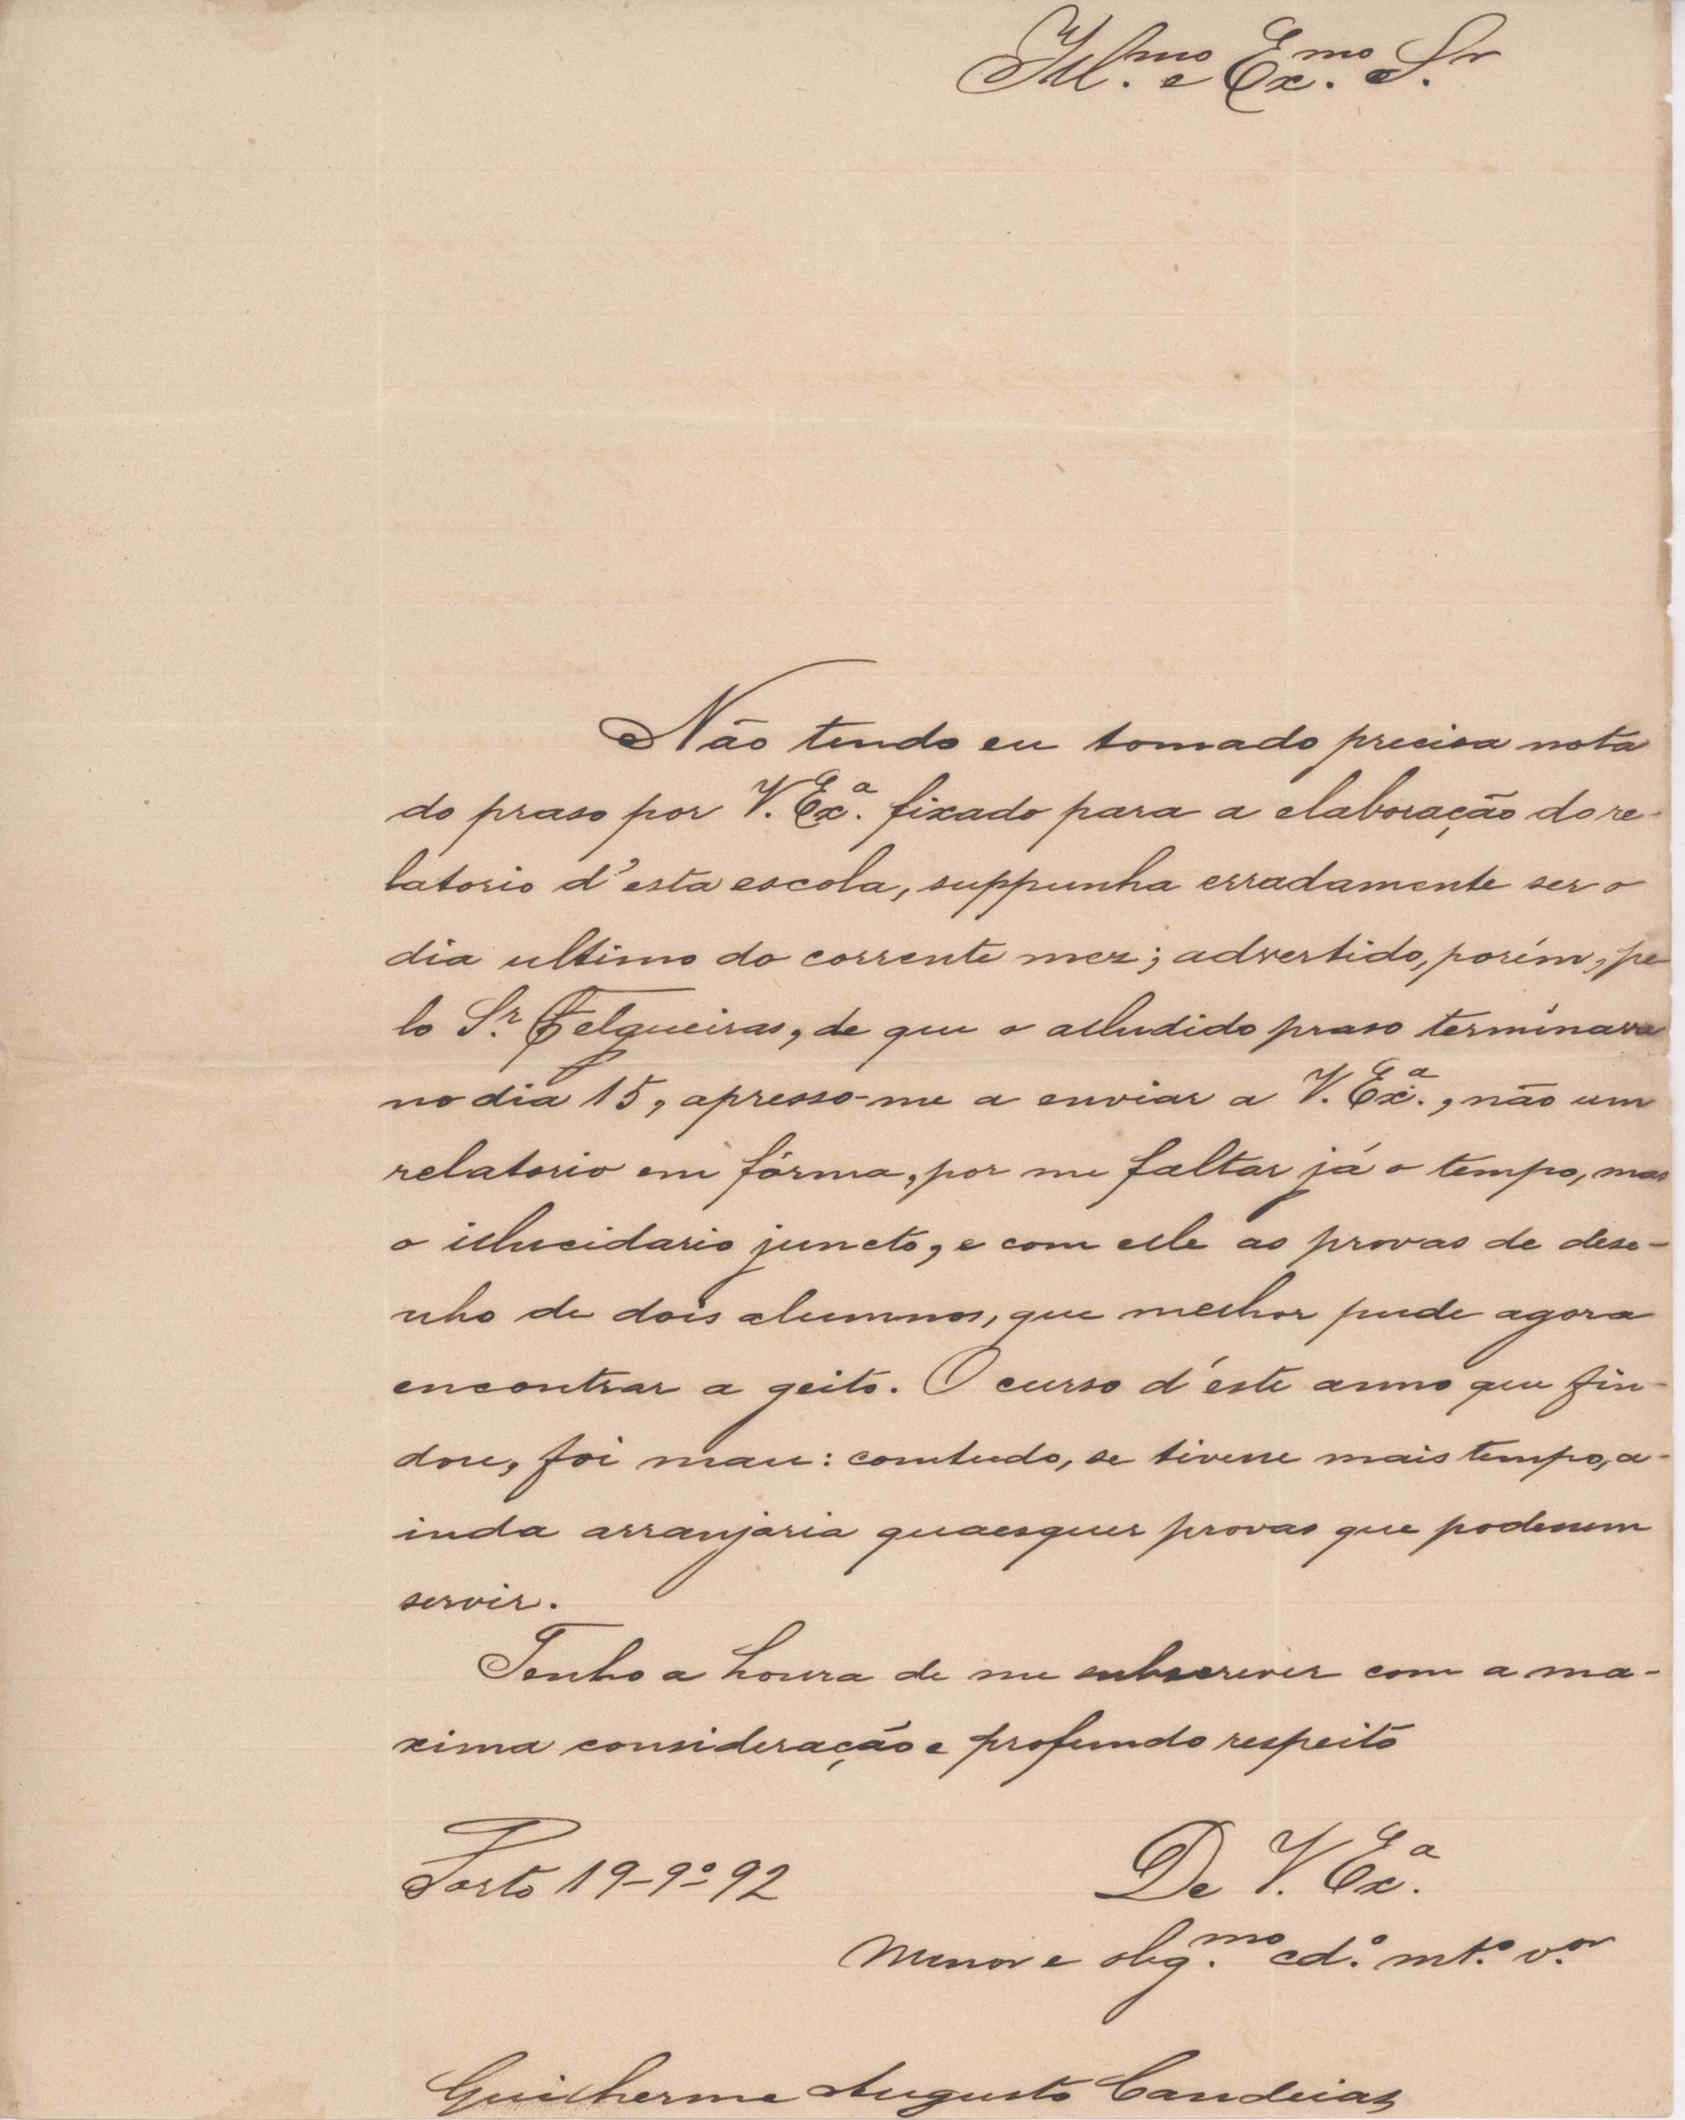 Ill.mo e Ex.mo Sr.
Não tendo eu tomado precisa nota
do praso por V. Ex.a fixado para a elaboração do re-
latorio d'esta escola, suppunha erradamente ser o
dia ultimo do corrente mez; advertido, porém, pe
lo Sr. Felgueiras, de que o alludido praso terminava
no dia 15, apresso-me a enviar a V. Ex.a, não um
relatorio em fórma, por me faltar já o tempo, mas
o illucidario juncto, e com elle as provas de dese-
nho de dois alumnos, que melhor pude agora
encontrar a geito. O curso d'éste anno que fin-
dou, foi mau: comtudo, se tivesse mais tempo, a-
inda arranjaria quaesquer provas que podessem
servir.
Tenho a honra de me subscrever com a ma-
xima consideração e profundo respeito
Porto 19-9º-92
De V. Ex.a
Menor e obg.mo cd.º mt.º v.or
Guilherme Augusto Candeias